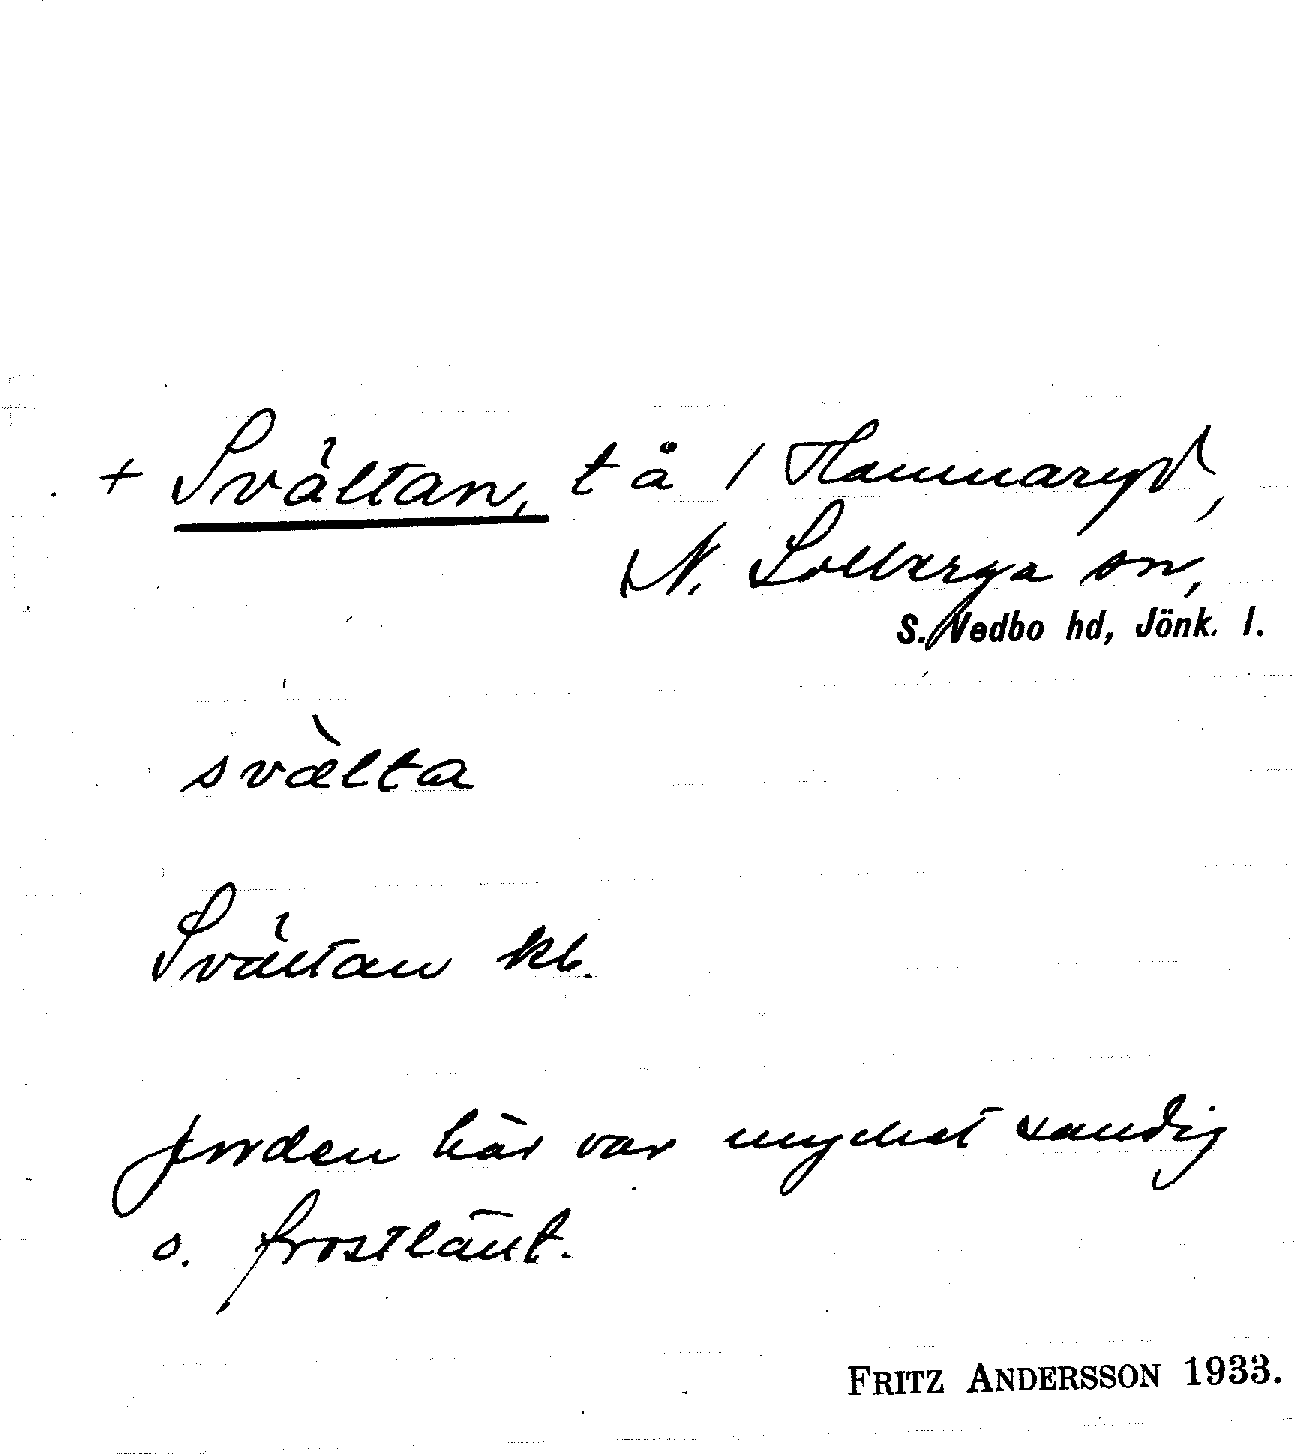 + Svältan, t å / Hammaryd,
N. Solberga sn,
S. Vedbo hd, Jönk. l.
svælta
Svältan kb.
Jorden här var mycket sandig
o. frostlänt.
FRITZ ANDERSSON 1933.